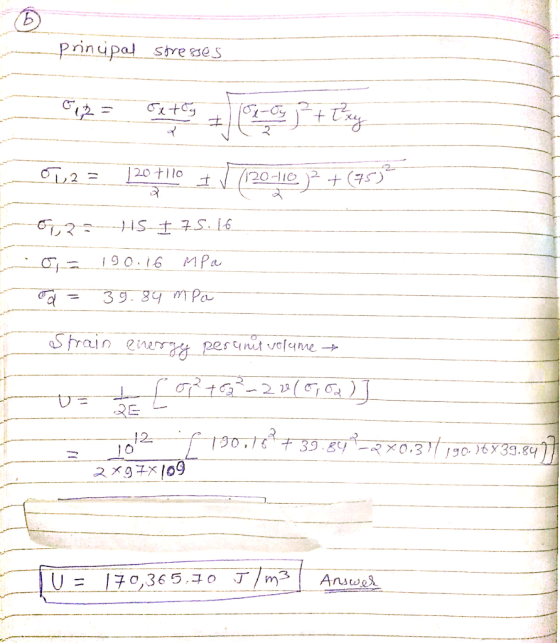 (b)
principal stresses
σ1,2 = σx+σy/2 ± √((σx-σy/2)² + τ²xy)
σ1,2 = 120+110/2 ± √((120-110/2)² + (75)²)
σ1,2 = 115 ± 75.16
σ1 = 190.16 MPa
σ2 = 39.84 MPa
Strain energy per unit volume →
U = 1/2E [σ1² + σ2² - 2ν(σ1σ2)]
= 10^12/2×97×10^9 [190.16² + 39.84² - 2×0.31(190.16×39.84)]
U = 170,365.70 J/m³ Answer